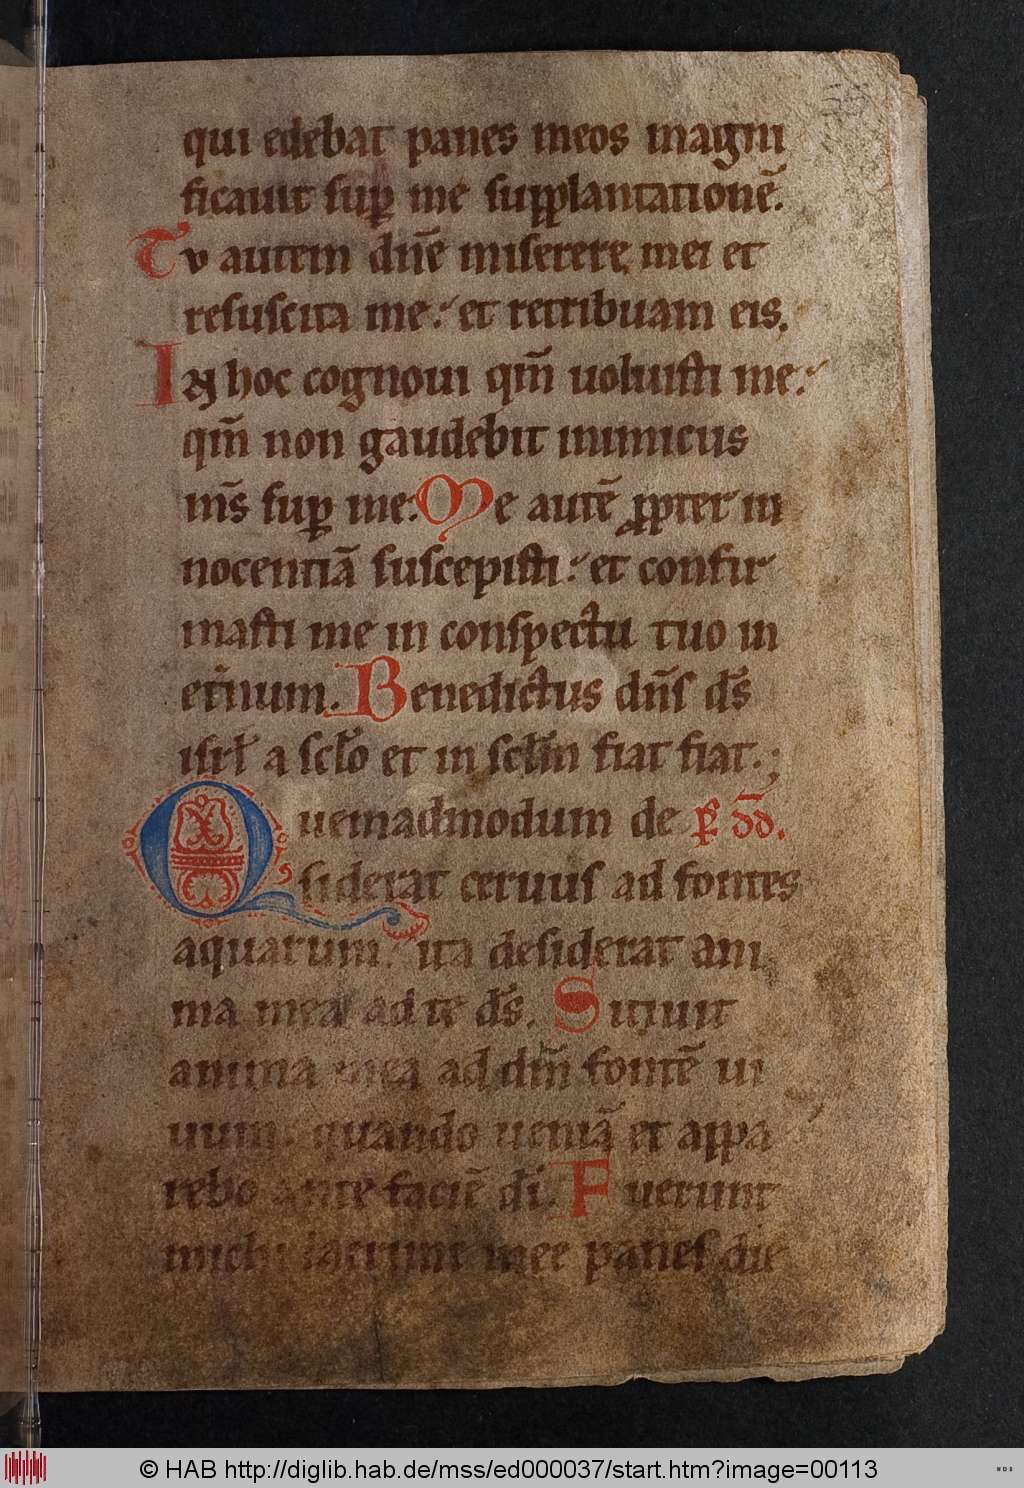 qui edebat panes meos magni
ficauit sup me supplantationē.
Tu autem dn̄e miserere mei et
resuscita me: et retribuam eis.
In hoc cognoui qm̄ uoluisti me:
qm̄ non gaudebit inimicus
m̄s sup me: Me autē ppter in
nocentiā suscepisti: et confir
masti me in conspectu tuo in
et̄num. Benedictus dn̄s ds̄
isrl̄ a scl̄o et in scl̄m fiat fiat.;
Quemadmodum de p̄s dd̄.
siderat ceruus ad fontes
aquarum: ita desiderat ani
ma mea ad te ds̄. Sitiuit
anima mea ad dm̄ fontē ui
uum: quando ueniā et appa
rebo ante faciē dī. Fuerunt
michi lacrime mee panes die
© HAB http://diglib.hab.de/mss/ed000037/start.htm?image=00113